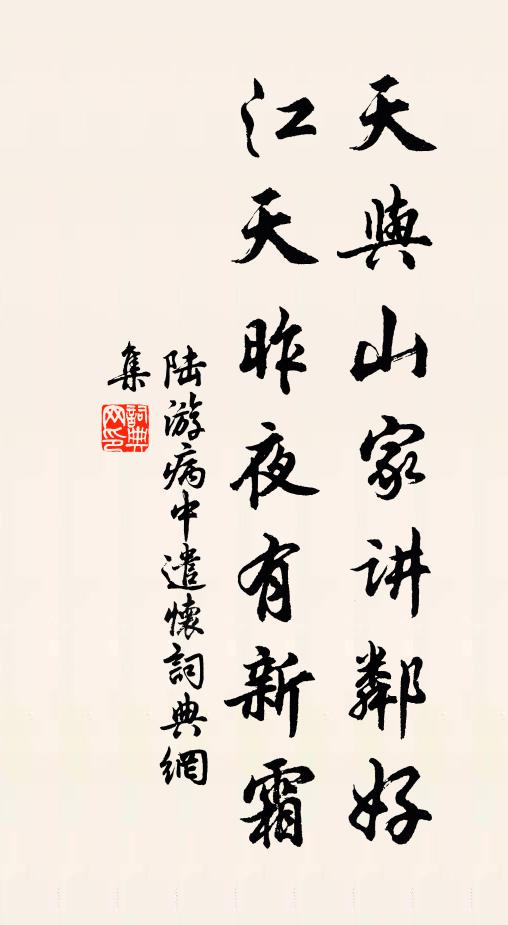 天與山家讲鄰好
江天昨夜有新霜
陆游病中遣懷詞典網
集
詞典网印